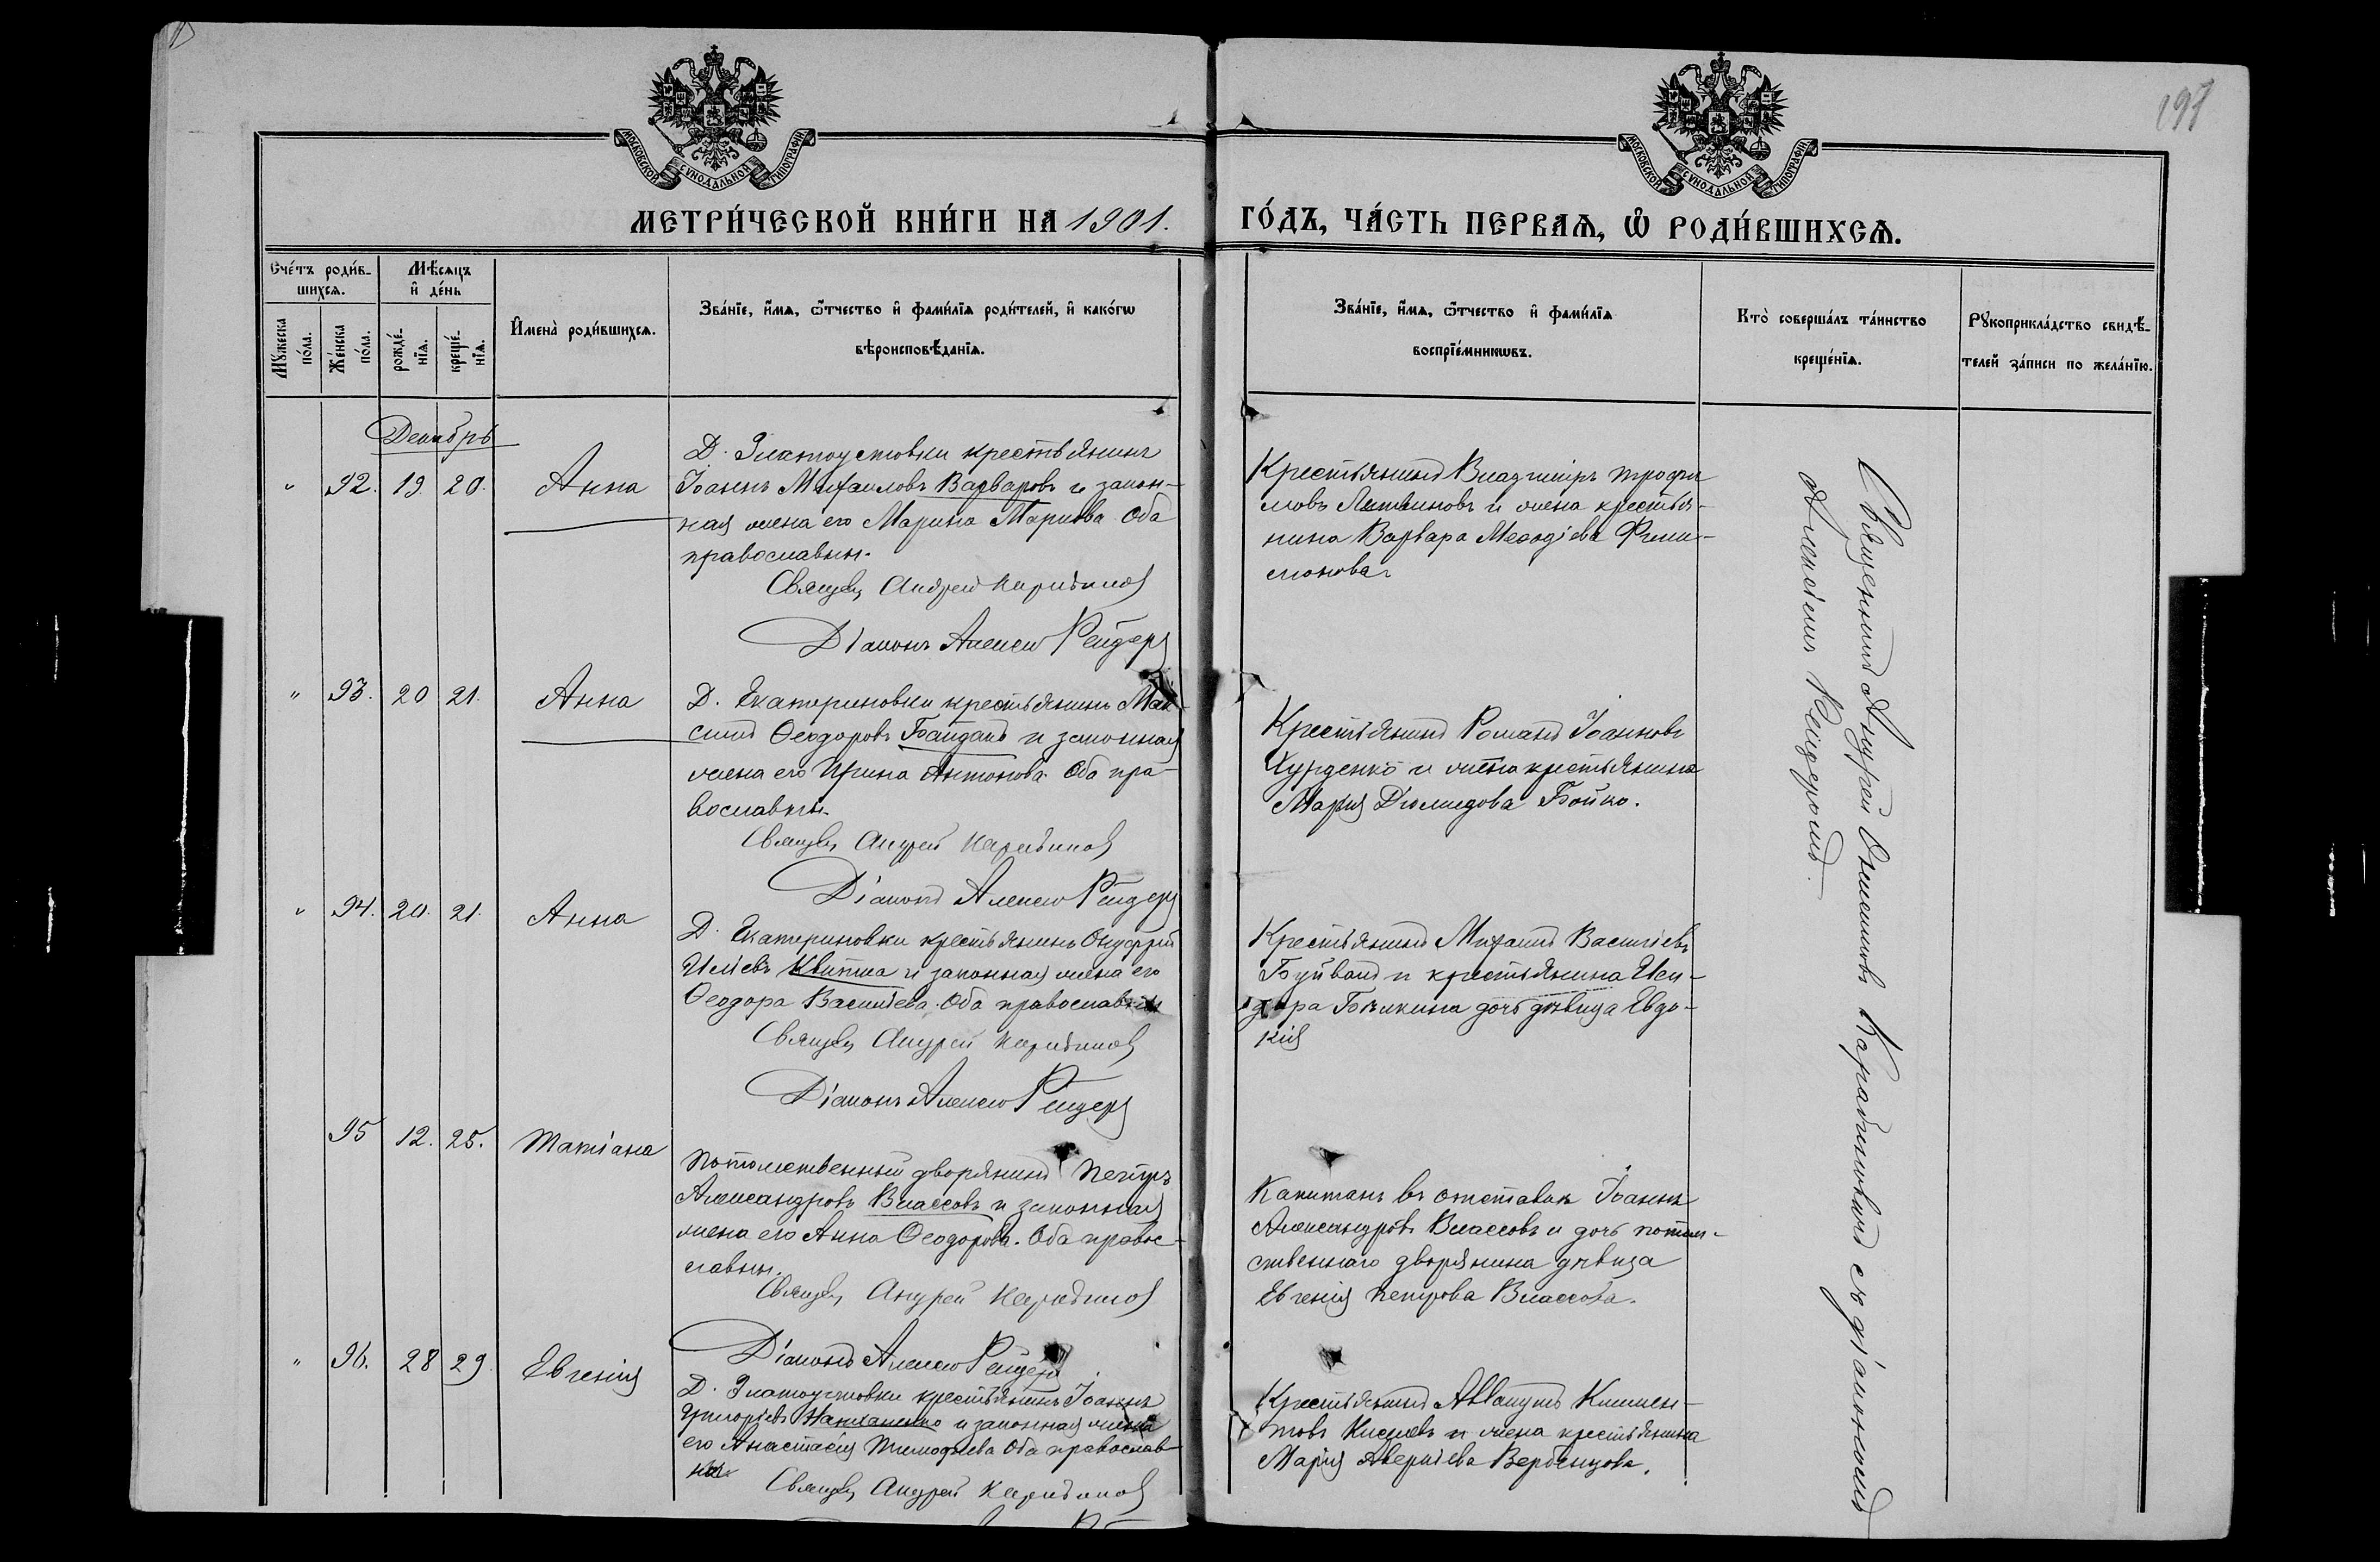 197
МОСКОВСКОЙ СѴНОДАЛЬНОЙ ТИПОГРАФІИ
МОСКОВСКОЙ СѴНОДАЛЬНОЙ ТИПОГРАФІИ
МЕТРИ́ЧЕСКОЙ КНИ́ГИ НА 1901.
ГО́ДЪ, ЧА́СТЬ ПЕРВАѦ, Ѡ҆ РОДИ́ВШИХСѦ.
Сче́тъ роди́в-
шихсѧ.
Мѣ́сѧцъ
и҆ де́нь
Мꙋ́жеска
по́ла.
Же́нска
по́ла.
рожде́-
нїѧ.
креще́-
нїѧ.
И҆мена̀ роди́вшихсѧ.
Зва́нїе, и҆́мѧ, ѻ҆́тчество и҆ фами́лїѧ роди́телей, и҆ како́гѡ
вѣроисповѣ́данїѧ.
Зва́нїе, и҆́мѧ, ѻ҆́тчество и҆ фами́лїѧ
воспрїе́мникѡвъ.
Кто̀ соверша́лъ та́инство
креще́нїѧ.
Рꙋкоприкла́дство свидѣ́-
телей за́писи по жела́нїю.
Декабрь
" 92. 19. 20. Анна
Д. Златоустовки крестьянинъ
Іоаннъ Михаиловъ Варваровъ и закон-
ная жена его Марина Маркова. Оба
православны.
Священ. Андрей Карабинов
Діаконъ Алексей Рейдер
Крестьянинъ Владиміръ Трофи
мовъ Литвиновъ и жена крестья-
нина Варвара Меѳодіева Фили-
монова
" 93. 20 21. Анна
Д. Екатериновки крестьянинъ Мак-
симъ Ѳеодоровъ Байданъ и законная
жена его Ирина Антонова. Оба пра-
вославны.
Священ. Андрей Карабинов
Діаконъ Алексей Рейдер
Крестьянинъ Романъ Іоанновъ
Хурденко и жена крестьянина
Марія Діомидова Бойко.
" 94. 20. 21. Анна
Д. Екатериновки крестьянинъ Онуфрій
Иліевъ Квитка и законная жена его
Ѳеодора Васильева. Оба православны
Священ. Андрей Карабинов
Діаконъ Алексей Рейдер
Крестьянинъ Михаилъ Васильевъ
Буйвалъ и крестьянина Иси-
дора дочь дѣвица Евдо-
кія
95 12. 25. Татіана
Потомственный дворянинъ Петръ
Александровъ Власовъ и законная
жена его Анна Ѳеодорова. Оба правос-
лавны.
Священ. Андрей Карабинов
Діаконъ Алексей Рейдер
Капитанъ въ отставкѣ Іоаннъ
Александровъ Власовъ и дочь потом-
ственнаго дворянина дѣвица
Евгенія Петрова Власова.
" 96. 28 29. Евгенія
Д. Златоустовки крестьянинъ Іоаннъ
Григоріевъ и законная жена
его Анастасія Тимофіева Оба православ-
ны
Священ. Андрей Карабинов
Крестьянинъ Аввакумъ Климен-
товъ и жена крестьянина
Марія Аверкіева Вербенцова.
Священникъ Андрей Карабиновъ съ діакономъ
Алексіемъ Рейдеромъ.